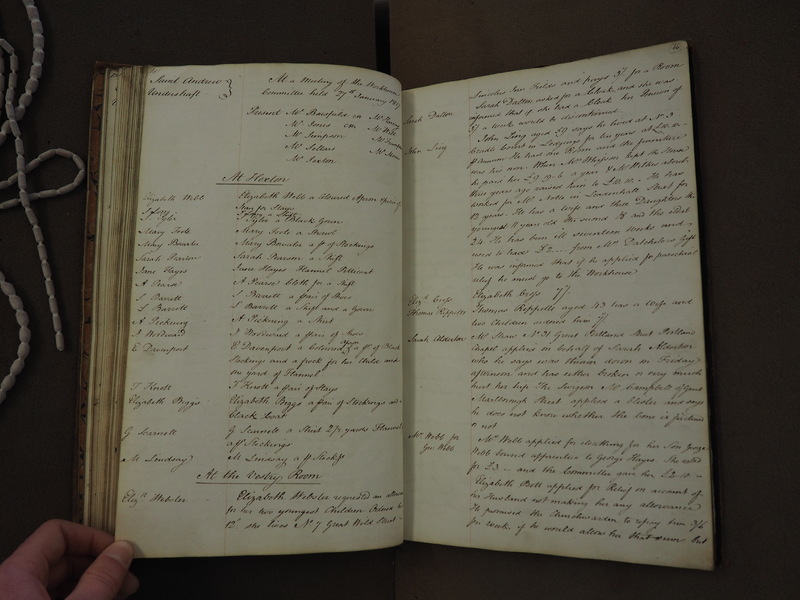 Saint Andrew
Undershaft
At a Meeting of the Workhouse
Committee held 27th January
Present Mr
Mr Jones
Mr Simpson
Mr Sellars
Mr Saxton
At Hoxton
Elizabeth Webb Elizabeth Webb a Coloured Apron
Mary Toole Mary Toole a Shawl
Mary Bowler Mary Bowler a pr of Stockings
Sarah Pearson Sarah Pearson a Shift
Jane Hayes Jane Hayes Flannel Petticoat
A Pearse A Pearse Cloth for a Shift
S Barrett S Barrett a pair of Shoes
S Barrett S Barrett a Shift and a Gown
A Pickning A Pickning a Shirt
a pair of Shoes
E Davenport E Davenport a Coloured a pr of Black
Stockings and a frock for her Child and
one yard of Flannel
T Knott T Knott a pair of Stays
Elizabeth Biggs Elizabeth Biggs a pair of Stockings and
black Coat
G Scarnell G Scarnell a Shirt 2/2 yards Flannel
a pr Stockings
M Lindsay M Lindsay a pr Stockgs
At the Vestry Room
Elizth Webster Elizabeth Webster requested an allowance
for her two youngest Children
she lives No 7 Great Wild Street
Lincolns Inn Fields and pays 3/ for a Room
Sarah Dalton Sarah Dalton asked for a Cloak and she was
informed that if she had a Cloak her Pension of
a week would be discontinued
John Long John Long aged 59 says he lived at No 3
Court in Lodgings for ten years at £10
annum He had one Room and the furniture
was his own When Mr kept the House
he paid her £9.19.6 a year & Mr Wilkes about
three years ago raised them to £10.10. He has
worked for Mr in Leadenhall Street for
12 years. He has a Wife and three Daughters the
youngest 11 years old the second 18 and the eldest
24. He has been ill seventeen weeks and
used to have £2 from Mr Gift
He was informed that if he applied for parochial
relief he must go to the Workhouse
Elizth Cross Elizabeth Cross 7/
Thomas Rippells Thomas Rippells aged 43 has a Wife and
two Children ordered him 7/
Sarah Alderton Mr Shaw No 31 Great Portland Street Portland
Chapel applied in behalf of Sarah Alderton
who he says was thrown down on Friday
afternoon and has either broken or very much
hurt her hip The Surgeon Mr Campbell of Great
Marlborough Street applied a blister and says
he does not know whether the bone is fractured
or not
Mr Webb for
Geo Webb
Mr Webb applied for cloathing for her Son George
Webb bound apprentice to George Hayes. She asked
for £3 and the Committee gave her £2.10
Elizabeth Bott applied for Relief on account of
her Husband not making her any allowance
He promised the Churchwarden to repay him 3/6
per week, if he would allow her that sum but